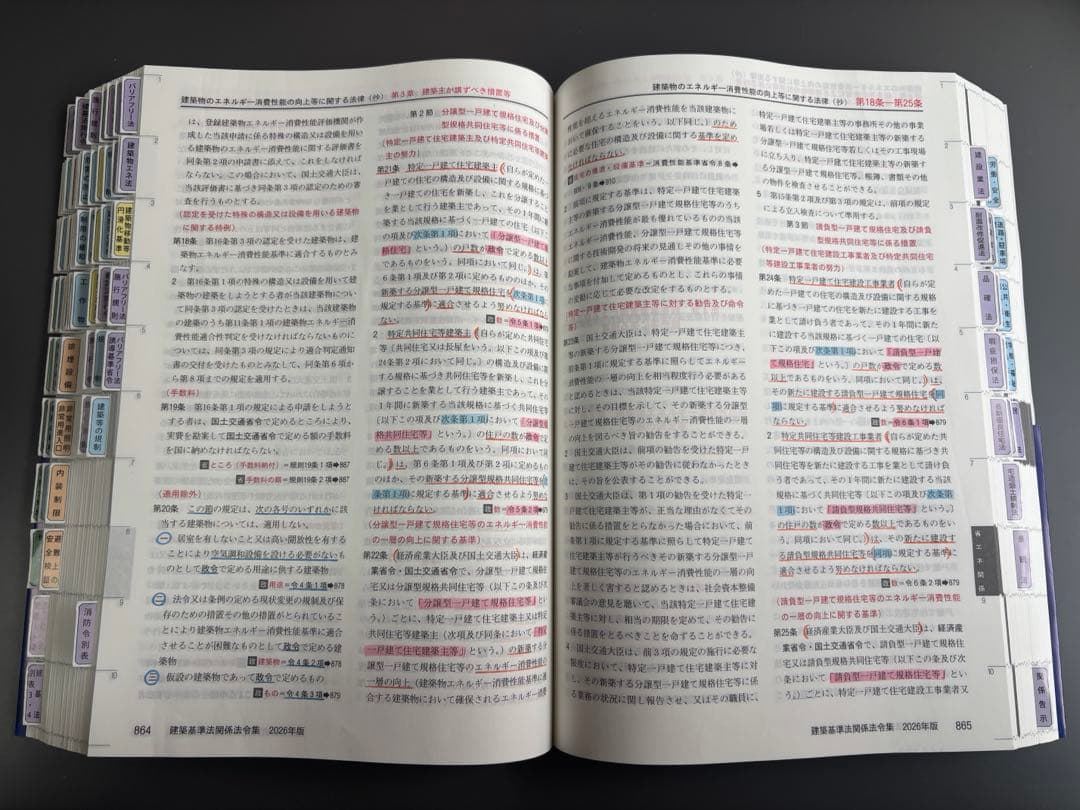 建築物のエネルギー消費性能の向上等に関する法律(抄) 第3章:建築主が講ずべき措置等
は、登録建築物エネルギー消費性能評価機関が作
成した当該申請に係る特殊の構造又は設備を用い
る建築物のエネルギー消費性能に関する評価書を
同条第2項の申請書に添えて、これをしなければ
ならない。この場合において、国土交通大臣は、
当該評価書に基づき同条第3項の認定のための審
査を行うものとする。
(認定を受けた特殊の構造又は設備を用いる建築物
に関する特例)
第18条 第16条第3項の認定を受けた建築物は、建
築物エネルギー消費性能基準に適合するものとみ
なす。
2 第16条第1項の特殊の構造又は設備を用いて建
築物の建築をしようとする者が当該建築物につい
て同条第3項の認定を受けたときは、当該建築物
の建築のうち第11条第1項の建築物エネルギー消
費性能適合性判定を受けなければならないものに
ついては、同条第3項の規定により適合判定通知
書の交付を受けたものとみなして、同条第6項か
ら第8項までの規定を適用する。
(手数料)
第19条 第16条第1項の規定による申請をしようと
する者は、国土交通省令で定めるところにより、
実費を勘案して国土交通省令で定める額の手数料
を国に納めなければならない。
ところ(手数料納付)=規則19条1項➡887
手数料の額=規則19条2項➡887
(適用除外)
第20条 この節の規定は、次の各号のいずれかに該
当する建築物については、適用しない。
一 居室を有しないこと又は高い開放性を有する
ことにより空気調和設備を設ける必要がないも
のとして政令で定める用途に供する建築物
用途=令4条1項➡878
二 法令又は条例の定める現状変更の規制及び保
存のための措置その他の措置がとられているこ
とにより建築物エネルギー消費性能基準に適合
させることが困難なものとして政令で定める建
築物
建築物=令4条2項➡878
三 仮設の建築物であって政令で定めるもの
もの=令4条3項➡879
第2節 分譲型一戸建て規格住宅及び分譲
型規格共同住宅等に係る措置
(特定一戸建て住宅建築主及び特定共同住宅等建築
主の努力)
第21条 特定一戸建て住宅建築主(自らが定めた一
戸建ての住宅の構造及び設備に関する規格に基づ
き一戸建ての住宅を新築し、これを分譲すること
を業として行う建築主であって、その1年間に新
築する当該規格に基づく一戸建ての住宅(以下こ
の項及び次条第1項において「分譲型一戸建て規
格住宅」という。)の戸数が政令で定める数以上
であるものをいう。同項において同じ。)は、第
6条第1項及び第2項に定めるもののほか、その
新築する分譲型一戸建て規格住宅を次条第1項に
規定する基準に適合させるよう努めなければなら
ない。 数=令5条1項➡879
2 特定共同住宅等建築主(自らが定めた共同住宅
等(共同住宅又は長屋をいう。以下この項及び第
24条第2項において同じ。)の構造及び設備に関
する規格に基づき共同住宅等を新築し、これを分
譲することを業として行う建築主であって、その
1年間に新築する当該規格に基づく共同住宅等
(以下この項及び次条第1項において「分譲型規
格共同住宅等」という。)の住戸の数が政令で定
める数以上であるものをいう。同項において同
じ。)は、第6条第1項及び第2項に定めるもの
のほか、その新築する分譲型規格共同住宅等を次
条第1項に規定する基準に適合させるよう努めな
ければならない。
(分譲型一戸建て規格住宅等のエネルギー消費性能
の一層の向上に関する基準)
第22条 経済産業大臣及び国土交通大臣は、経済産
業省令・国土交通省令で、分譲型一戸建て規格住
宅又は分譲型規格共同住宅等(以下この条及び次
条において「分譲型一戸建て規格住宅等」とい
う。)ごとに、特定一戸建て住宅建築主又は特定
共同住宅等建築主(次項及び同条において「特定
一戸建て住宅建築主等」という。)の新築する分
譲型一戸建て規格住宅等のエネルギー消費性能の
一層の向上(建築物エネルギー消費性能基準に適
合する建築物において確保されるエネルギー消費
864 建築基準法関係法令集 2026年版
建築物のエネルギー消費性能の向上等に関する法律(抄) 第18条―第25条
性能を超えるエネルギー消費性能を当該建築物に
おいて確保することをいう。以下同じ。)のため
に必要な住宅の構造及び設備に関する基準を定め
なければならない。
住宅の構造・設備基準=消費性能基準省令8条➡
908・9条➡910
2 前項に規定する基準は、特定一戸建て住宅建築
主等の新築する分譲型一戸建て規格住宅等のうち
エネルギー消費性能が最も優れているものの当該
エネルギー消費性能、分譲型一戸建て規格住宅等
に関する技術開発の将来の見通しその他の事情を
勘案して、建築物エネルギー消費性能基準に必要
な事項を付加して定めるものとし、これらの事情
の変動に応じて必要な改定をするものとする。
(特定一戸建て住宅建築主等に対する勧告及び命令
等)
第23条 国土交通大臣は、特定一戸建て住宅建築主
等の新築する分譲型一戸建て規格住宅等につき、
前条第1項に規定する基準に照らしてエネルギー
消費性能の一層の向上を相当程度行う必要がある
と認めるときは、当該特定一戸建て住宅建築主等
に対し、その目標を示して、その新築する分譲型
一戸建て規格住宅等のエネルギー消費性能の一層
の向上を図るべき旨の勧告をすることができる。
2 国土交通大臣は、前項の勧告を受けた特定一戸
建て住宅建築主等がその勧告に従わなかったとき
は、その旨を公表することができる。
3 国土交通大臣は、第1項の勧告を受けた特定一
戸建て住宅建築主等が、正当な理由がなくてその
勧告に係る措置をとらなかった場合において、前
条第1項に規定する基準に照らして特定一戸建て
住宅建築主等が行うべきその新築する分譲型一戸
建て規格住宅等のエネルギー消費性能の一層の向
上を著しく害すると認めるときは、社会資本整備
審議会の意見を聴いて、当該特定一戸建て住宅建
築主等に対し、相当の期限を定めて、その勧告に
係る措置をとるべきことを命ずることができる。
4 国土交通大臣は、前3項の規定の施行に必要な
限度において、特定一戸建て住宅建築主等に対
し、その新築する分譲型一戸建て規格住宅等に係
る業務の状況に関し報告させ、又はその職員に、
特定一戸建て住宅建築主等の事務所その他の事業
場若しくは特定一戸建て住宅建築主等の新築する
分譲型一戸建て規格住宅等若しくはその工事現場
に立ち入り、特定一戸建て住宅建築主等の新築す
る分譲型一戸建て規格住宅等、帳簿、書類その他
の物件を検査させることができる。
5 第15条第2項及び第3項の規定は、前項の規定
による立入検査について準用する。
第3節 請負型一戸建て規格住宅及び請負
型規格共同住宅等に係る措置
(特定一戸建て住宅建設工事業者及び特定共同住宅
等建設工事業者の努力)
第24条 特定一戸建て住宅建設工事業者(自らが定
めた一戸建ての住宅の構造及び設備に関する規格
に基づき一戸建ての住宅を新たに建設する工事を
業として請け負う者であって、その1年間に新た
に建設する当該規格に基づく一戸建ての住宅(以
下この項及び次条第1項において「請負型一戸建
て規格住宅」という。)の戸数が政令で定める数
以上であるものをいう。同項において同じ。)は、
その新たに建設する請負型一戸建て規格住宅を同
項に規定する基準に適合させるよう努めなければ
ならない。 数=令6条1項➡879
2 特定共同住宅等建設工事業者(自らが定めた共
同住宅等の構造及び設備に関する規格に基づき共
同住宅等を新たに建設する工事を業として請け負
う者であって、その1年間に新たに建設する当該
規格に基づく共同住宅等(以下この項及び次条第
1項において「請負型規格共同住宅等」という。)
の住戸の数が政令で定める数以上であるものをい
う。同項において同じ。)は、その新たに建設す
る請負型規格共同住宅等を同項に規定する基準に
適合させるよう努めなければならない。
数=令6条2項➡879
(請負型一戸建て規格住宅等のエネルギー消費性能
の一層の向上に関する基準)
第25条 経済産業大臣及び国土交通大臣は、経済産
業省令・国土交通省令で、請負型一戸建て規格住
宅又は請負型規格共同住宅等(以下この条及び次
条において「請負型一戸建て規格住宅等」とい
う。)ごとに、特定一戸建て住宅建設工事業者又
建築基準法関係法令集 2026年版 865
バリアフリー法
建築物エネ法
建築物移動等円滑化基準
工作物
バリアフリー法施行規則
バリアフリー法誘導基準省令
建築等の規制
内装制限
消防令別表
建設業法
耐震改修促進法
品確法
瑕疵担保法
長期優良住宅法
宅造盛土規制法
省エネ関係
関係告示